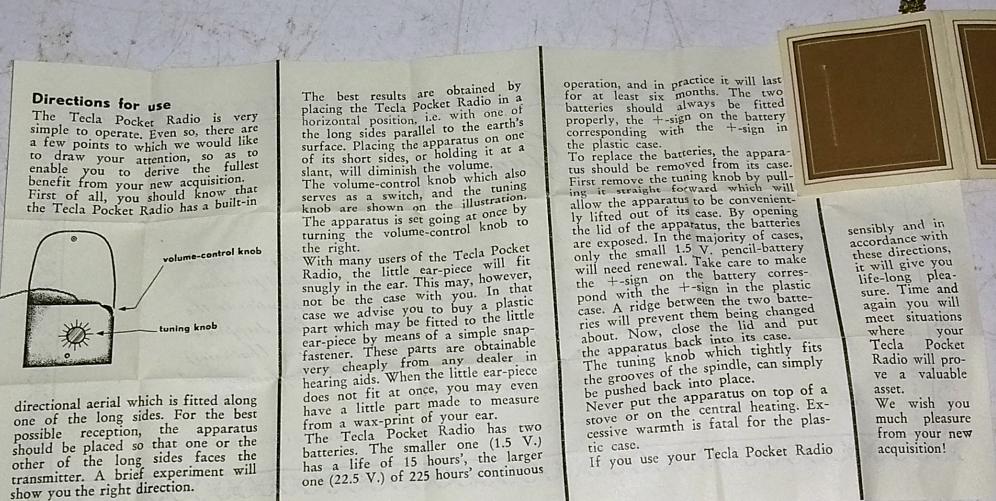 Directions for use
The Tecla Pocket Radio is very
simple to operate. Even so, there are
a few points to which we would like
to draw your attention, so as to
enable you to derive the fullest
benefit from your new acquisition.
First of all, you should know that
the Tecla Pocket Radio has a built-in
volume-control knob
tuning knob
directional aerial which is fitted along
one of the long sides. For the best
possible reception, the apparatus
should be placed so that one or the
other of the long sides faces the
transmitter. A brief experiment will
show you the right direction.
The best results are obtained by
placing the Tecla Pocket Radio in a
horizontal position, i.e. with one of
the long sides parallel to the earth's
surface. Placing the apparatus on one
of its short sides, or holding it at a
slant, will diminish the volume.
The volume-control knob which also
serves as a switch, and the tuning
knob are shown on the illustration.
The apparatus is set going at once by
turning the volume-control knob to
the right.
With many users of the Tecla Pocket
Radio, the little ear-piece will fit
snugly in the ear. This may, however,
not be the case with you. In that
case we advise you to buy a plastic
part which may be fitted to the little
ear-piece by means of a simple snap-
fastener. These parts are obtainable
very cheaply from any dealer in
hearing aids. When the little ear-piece
does not fit at once, you may even
have a little part made to measure
from a wax-print of your ear.
The Tecla Pocket Radio has two
batteries. The smaller one (1.5 V.)
has a life of 15 hours', the larger
one (22.5 V.) of 225 hours' continuous
operation, and in practice it will last
for at least six months. The two
batteries should always be fitted
properly, the +-sign on the battery
corresponding with the +-sign in
the plastic case.
To replace the batteries, the appara-
tus should be removed from its case.
First remove the tuning knob by pull-
ing it straight forward which will
allow the apparatus to be convenient-
ly lifted out of its case. By opening
the lid of the apparatus, the batteries
are exposed. In the majority of cases,
only the small 1.5 V. pencil-battery
will need renewal. Take care to make
the +-sign on the battery corres-
pond with the +-sign in the plastic
case. A ridge between the two batte-
ries will prevent them being changed
about. Now, close the lid and put
the apparatus back into its case.
The tuning knob which tightly fits
the grooves of the spindle, can simply
be pushed back into place.
Never put the apparatus on top of a
stove or on the central heating. Ex-
cessive warmth is fatal for the plas-
tic case.
If you use your Tecla Pocket Radio
sensibly and in
accordance with
these directions,
it will give you
life-long plea-
sure. Time and
again you will
meet situations
where your
Tecla Pocket
Radio will pro-
ve a valuable
asset.
We wish you
much pleasure
from your new
acquisition!